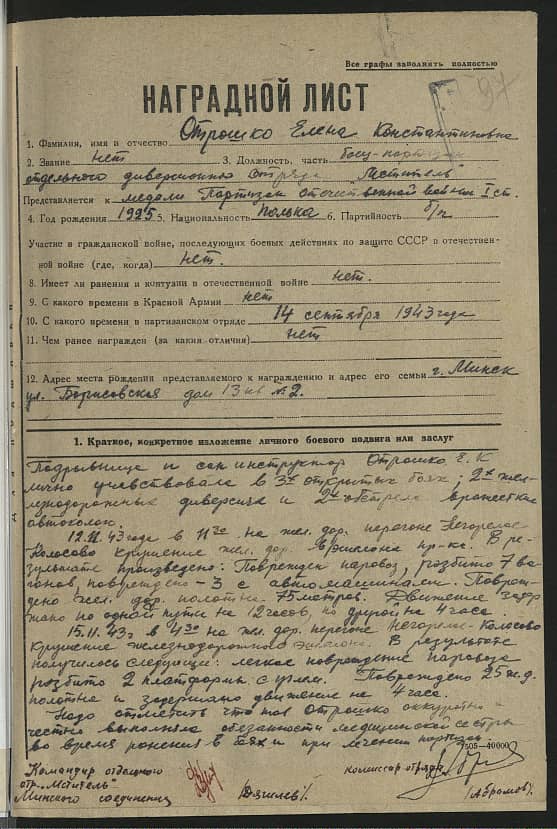 Все графы заполнять полностью
97
НАГРАДНОЙ ЛИСТ
1. Фамилия, имя и отчество Отрошко Елена Константиновна
2. Звание нет 3. Должность, часть боец-партизан
отдельного диверсионно отряда "Мститель"
Представляется к медали Партизан отечественной войны I ст.
4. Год рождения 1925 5. Национальность полька 6. Партийность б/п
Участие в гражданской войне, последующих боевых действиях по защите СССР в отечествен-
ной войне (где, когда) нет.
8. Имеет ли ранения и контузии в отечественной войне нет.
9. С какого времени в Красной Армии нет
10. С какого времени в партизанском отряде 14 сентября 1943 года
11. Чем ранее награжден (за какия отличия) нет
12. Адрес места рождения представляемого к награждению и адрес его семьи г. Минск
ул. Борисовская дом 13 кв № 2.
1. Краткое, конкретное изложение личного боевого подвига или заслуг
Подрывница и сан инструктор Отрошко Е. К
лично учавствовала в 3х открытых боях; 2х жел-
лезнодорожных диверсиях и 2х обстрела вражеских
автоколон.
12.11.43 года в 11 30 на жел. дор. перегоне Негорелое-
Колосово крушение жел. дор. эшелона пр-ка. В ре-
зультате произведено: Поврежден паровоз, розбито 7 ва-
гонов, повреждено - 3 с автомашинами. Повреж-
дено жел. дор. полотна - 75 метров. Движение задер-
жано по одной пути на 12 часов, по другой на 4 часа.
15.11.43 г в 4 30 на жел. дор. перегоне Негорелое-Колосово
крушение железнодорожного эшелона. В результате
получилось следующи: легкое повреждение паровоза
розбито 2 платформ. с углем. Повреждено 25 ж.д.
полотна и задержано движение на 4 часа.
Надо отметить что тов Отрошко аккуратно и
честно выполняла обезанности медицинской сестры
во время ранения в боях и при лечении партизан.
7505—40000
Командир отдельного
отр. "Мститель"
Минского соединения
комиссар отряда
(Абромов).